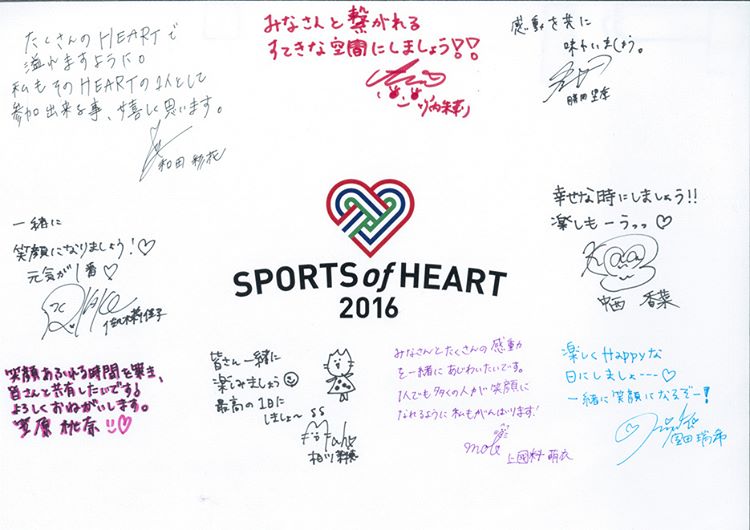 たくさんのHEARTで
溢れますように。
私もそのHEARTの1人として
参加出来る事、嬉しく思います。
和田 彩花
みなさんと繋がれる
すてきな空間にしましょう!!
竹内朱莉
感動を共に
味わいましょう。
勝田里奈
一緒に
笑顔になりましょう!♡
元気が1番♡
佐々木莉佳子
SPORTS of HEART
2016
幸せな時にしましょう!!
楽しもーうっっ♡
中西 香菜
笑顔あふれる時間を築き、
皆さんと共有したいです!
よろしくおねがいします。
笠原桃奈
皆さん一緒に
楽しみましょう
最高の1日に
しましょ〜ss
相川茉穂
みなさんとたくさんの感動
を一緒にあじわいたいです。
1人でも多くの人が笑顔に
なれるように私もがんばります!
moe
上國料 萌衣
楽しくHappyな
日にしましょ---♡
一緒に笑顔になるぞー!
室田 瑞希